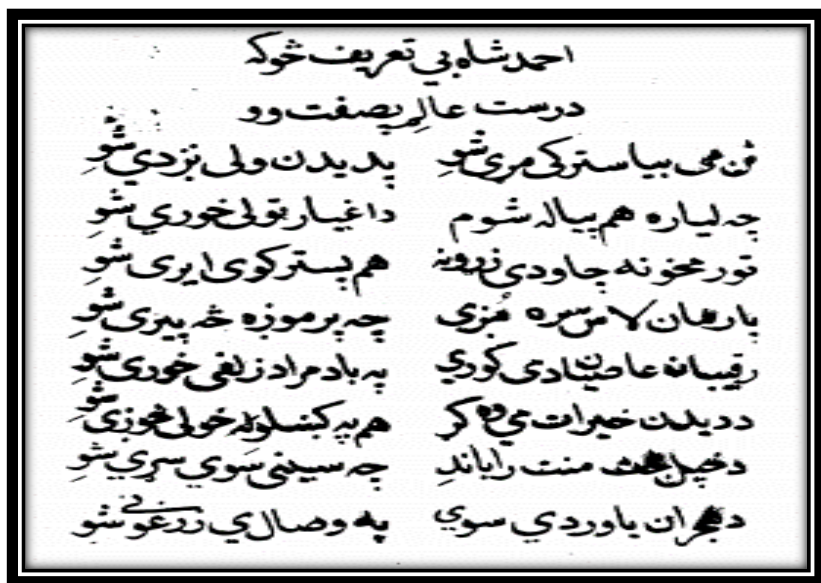 احمد شاه یي تعریف څوکه
درست عالم پصفت وو
نن می بیا سترکی مړی شو پدیدن ولی نږدي شو
چه لیاره هم پیاله شوم داغیار تولی خوري شو
تور مخونه چاودی زړونه هم پستر کوی ایری شو
یارهمان لاس سره مښزي چه پرموزه څه پیزی شو
رقیبان عاصیان دی کوري په باد مراد زلفی خوری شو
د دیدن خیرات می وه کړ هم په کښلو له خولی شو
دخپل بخت منت راباندِ چه سینی سوي سړي شو
دهجران یاوردي سوي په وصال ي زرغونی شو